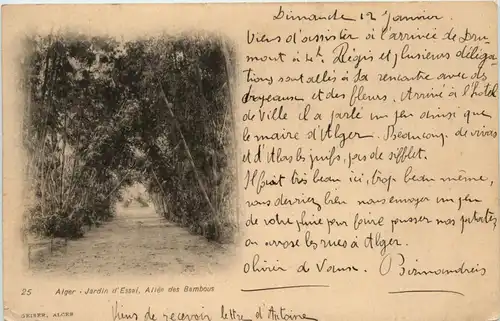 Dimanche 12 Janvier.
Viens d'assister à l'arrivée de Dru-
mont à 4h Régis et plusieurs déléga-
tions sont allés à sa rencontre avec des
drapeaux et des fleurs. Arrivé à l'hôtel
de Ville il a parlé un peu ainsi que
le maire d'Alger. Beaucoup de vivas
et d'Abas les juifs, pas de sifflet.
Il fait très beau ici, trop beau même,
vous devriez bien nous envoyer un peu
de votre pluie pour faire pousser nos patates,
on arrose les rues à Alger.
Olivier de Vaux. Birmandreis
25 Alger - Jardin d'Essai, Allée des Bambous
GEISER, ALGER
Viens de recevoir lettre d'Antoine